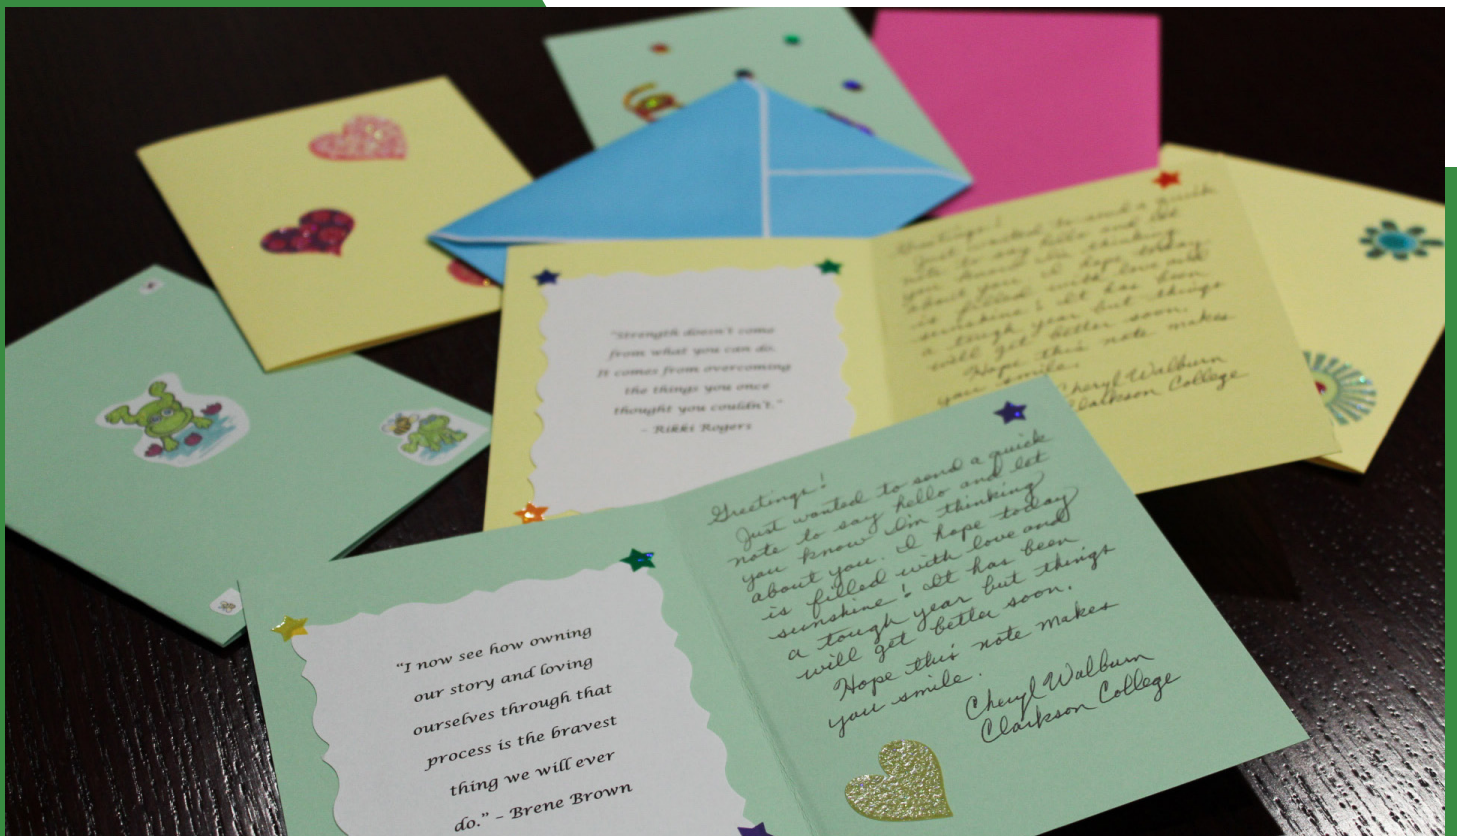 "Strength doesn't come
from what you can do.
It comes from overcoming
the things you once
thought you couldn't."
- Rikki Rogers
Greetings!
Just wanted to send a quick
note to say hello and let
you know I'm thinking
about you. I hope today
is filled with love and
sunshine! It has been
a tough year but things
will get better soon.
Hope this note makes
you smile.
Cheryl Walburn
Clarkson College
"I now see how owning
our story and loving
ourselves through that
process is the bravest
thing we will ever
do." – Brene Brown
Greetings!
Just wanted to send a quick
note to say hello and let
you know I'm thinking
about you. I hope today
is filled with love and
sunshine! It has been
a tough year but things
will get better soon.
Hope this note makes
you smile.
Cheryl Walburn
Clarkson College